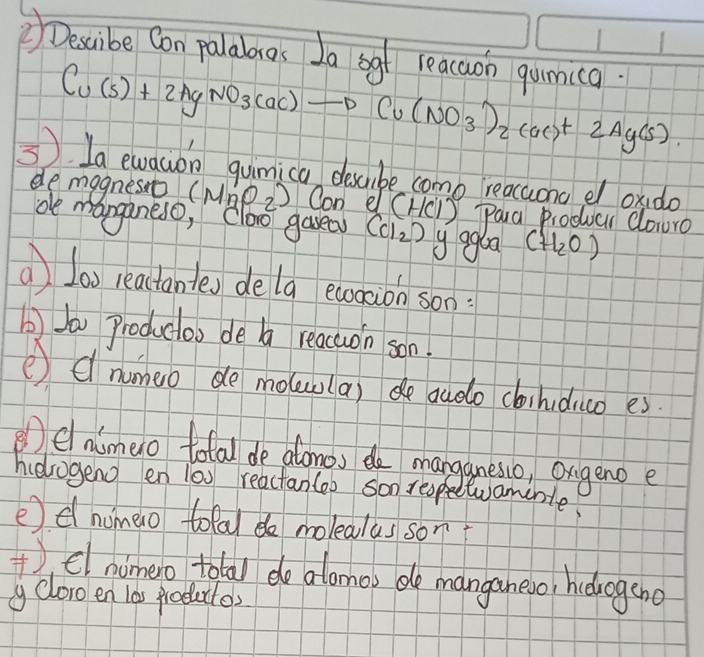 2) Describe Con palabras La sgt reacción quimica.
Cu (s) + 2Ag NO3(ac) → Cu (NO3)2 (ac)+ 2Ag(s).
3) La ewación quimica describe como reacciona el oxido
de magnesio (MnO2) Con el (HCl) Para Producir cloruro
de manganeso, cloro gaseoso (Cl2) y agua (H2O)
a) Los reactantes de la ecuación son:
b) Los Productos de la reacción son.
e) El número de moleculas de acido clorhidrico es.
d) El número total de atomos de manganesio, oxigeno e
hidrogeno en los reactantes son respectivamente.
e) El número total de moleculas son:
f) El número total de atomos de manganeso, hidrogeno
y Cloro en los productos